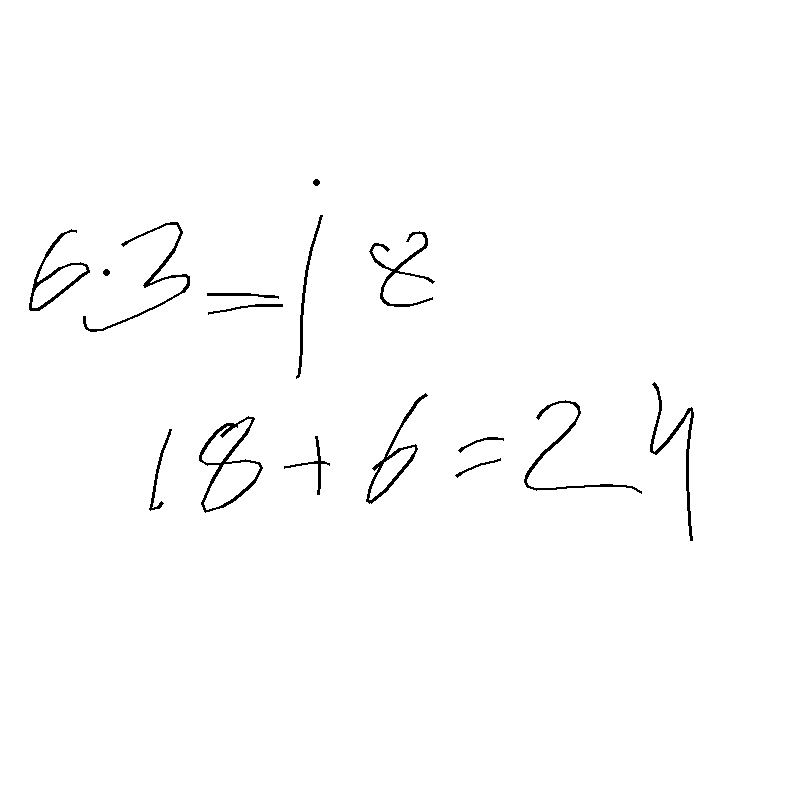 6·3=18
18+6=24